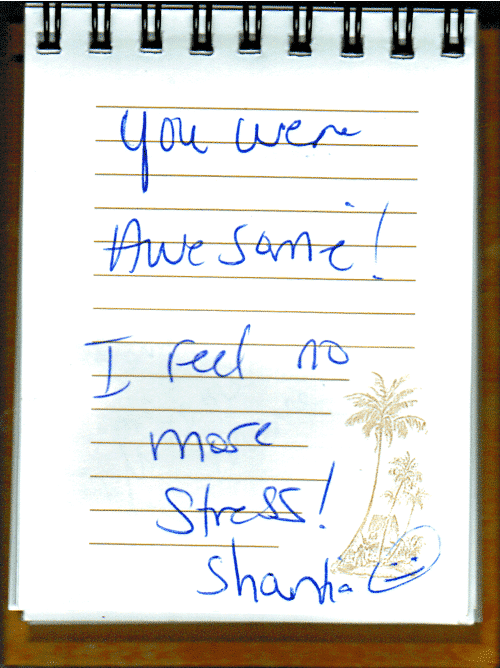 You were
Awesome!
I feel no
more
stress!